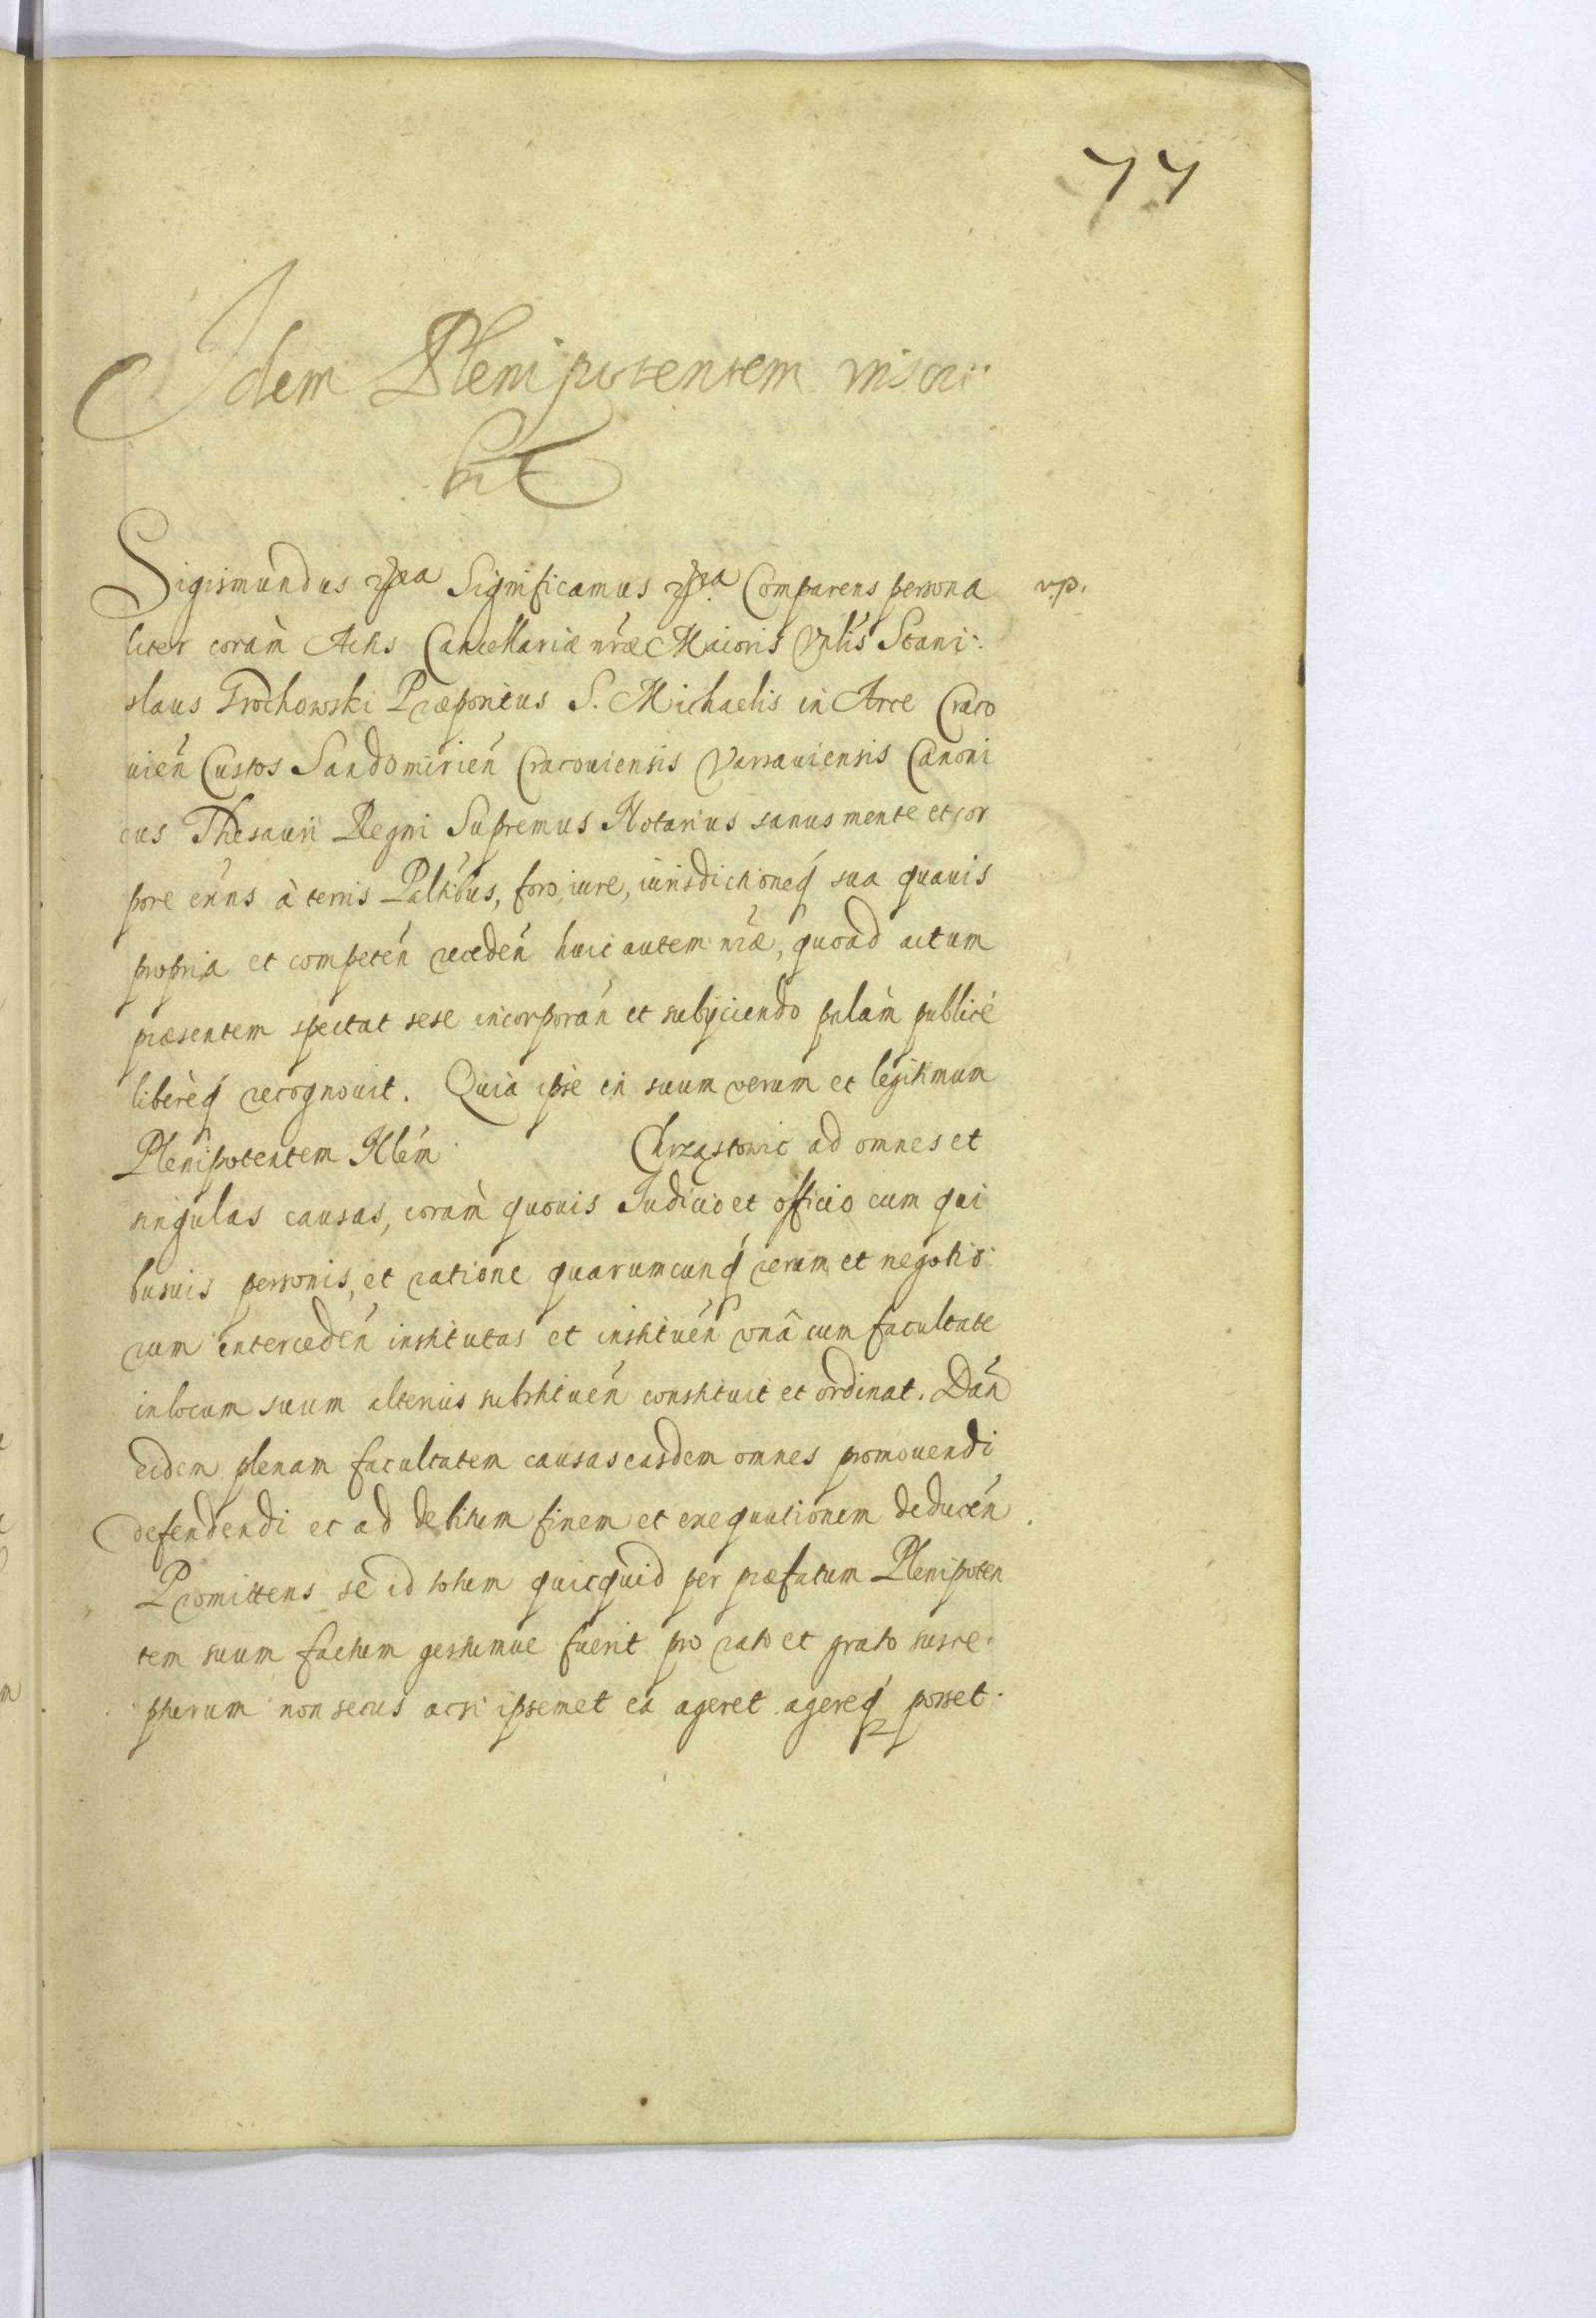 77
Idem Plenipotentem inscri
bit
Sigismundus &c̃a Significamus &c̃a Comparens persona v.p.
liter coràm Actis Cancellariæ nr̃æ Maioris Vnlis Stani:
slaus Grochowski Præpositus S. Michaelis in Arce Craco
uień Custos Sandomirień Cracouiensis Varsauiensis Canoni
cus Thesauri Regni Supremus Notarius sanus mente et cor
pore exńs à terris Paltibus, foro, iure, iurisdictioneq́ sua quauis
propria et competeń receden huic autem nr̃æ, quoad actum
præsentem spectat sese incorporań et subijciendo palàm publicè
liberèq́ recognouit. Quià ipse in suum verum et legitimum
Plenipotentem Nlem Chrząstowic ad omnes et
singulas causas, coràm quouis Iudicio et officio cum qui
busuis personis, et ratione quarumcunq́ rerum et negotio
rum intercedeń institutas et instituéń vnâ cum facultate
in locum suum alterius substituéń constituit et ordinat. Dań
eidem plenam facultatem causas easdem omnes promouendi
defendendi et ad debitum finem et exequutionem deduceń.
Promittens se id totum quicquid per præfatum Plenipoten
tem suum factum gestumue fuerit pro rato et grato susce
pturum non secus acsi ipsemet ea ageret agereq́ posset.